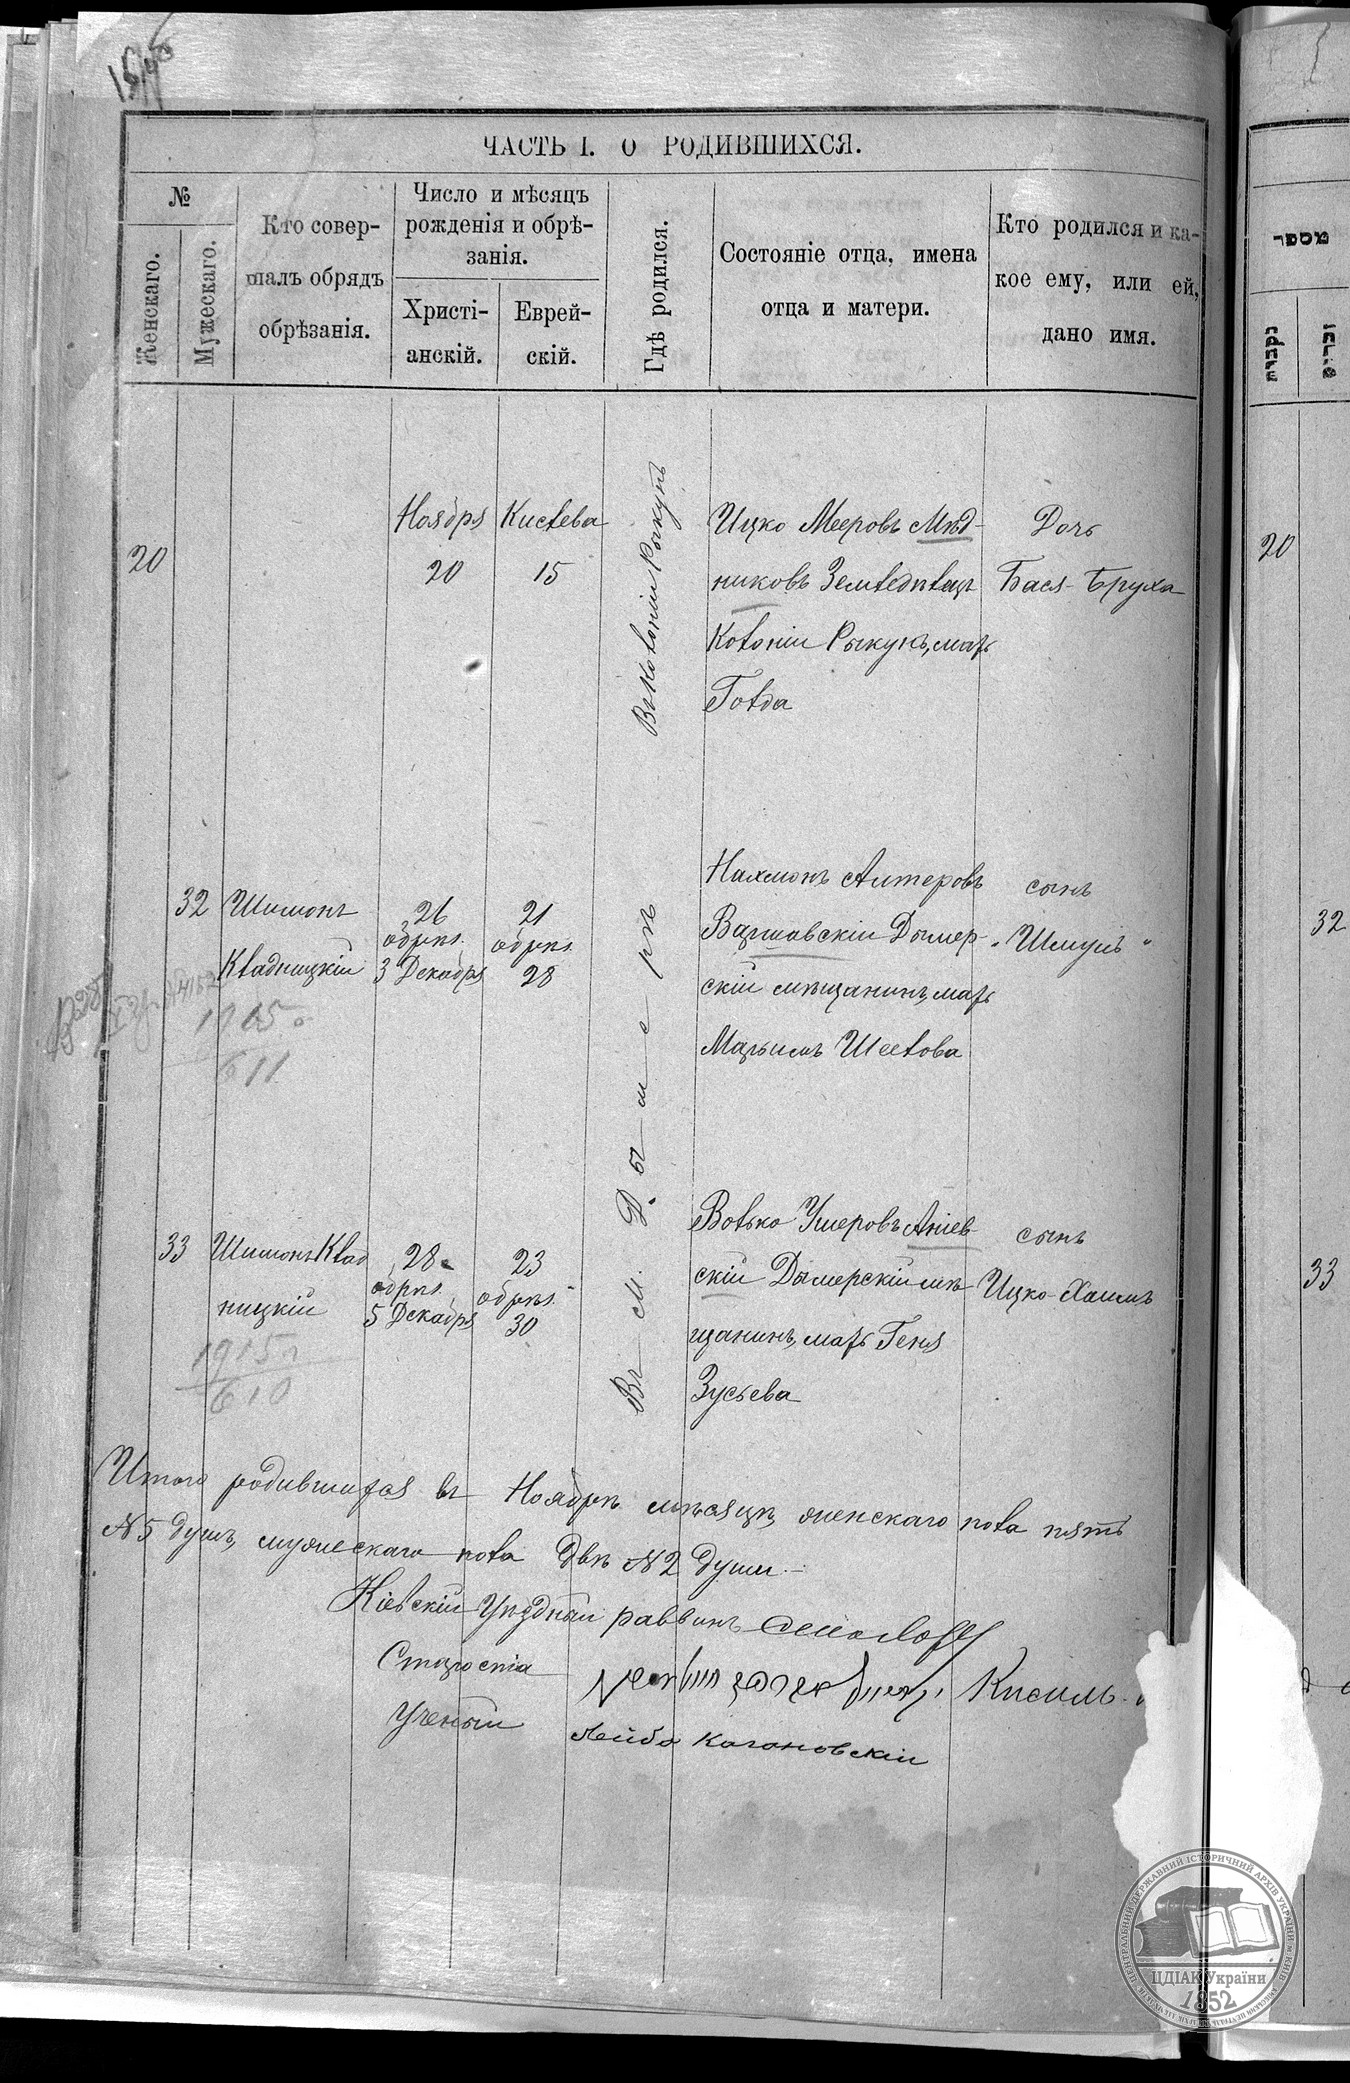 ЧАСТЬ I. О РОДИВШИХСЯ.
№
Женскаго.
Мужескаго.
Кто совер-
шалъ обрядъ
обрѣзанія.
Число и мѣсяцъ
рожденія и обрѣ-
занія.
Христі-
анскій.
Еврей-
скій.
Гдѣ родился.
Состояніе отца, имена
отца и матери.
Кто родился и ка-
кое ему, или ей,
дано имя.
20
Ноября
20
Кислева
15
Въ Колоніи Рыкунь
Ицко Мееровъ Мѣд-
никовъ Земледѣлецъ
Колоніи Рыкунь, мать
Голда
Дочь
Бася-Бруха
32
Шимонъ
Кладницкій
1915г.
611
26
обрѣз.
3 Декабря
21
обрѣз.
28
Въ м. Дымерѣ
Нахмонъ Алтеровъ
Варшавскій Дымер-
скій мѣщанинъ, мать
Марьимъ Шеелова
сынъ
„Шмуль"
33
Шимонъ Клад
ницкій
1915г.
610
28
обрѣз.
5 Декабря
23
обрѣз.
30
Волько Ушеровъ Аніев-
скій Дымерскій мѣ-
щанинъ, мать Геня
Зусьева
сынъ
Ицко-Хаимъ
Итого родившихся въ Ноябрѣ мѣсяцѣ, женскаго пола пять
№5 душъ, мужескаго пола двѣ №2 души.-
Кіевскій Уѣздный раввинъ
Староста
Кисиль
Ученый Лейба Кагановскій
מספר
נקבות
זכרים
20
32
33
ЦЕНТРАЛЬНИЙ ДЕРЖАВНИЙ ІСТОРИЧНИЙ АРХІВ УКРАЇНИ м. КИЇВ
ЦДІАК України
1852